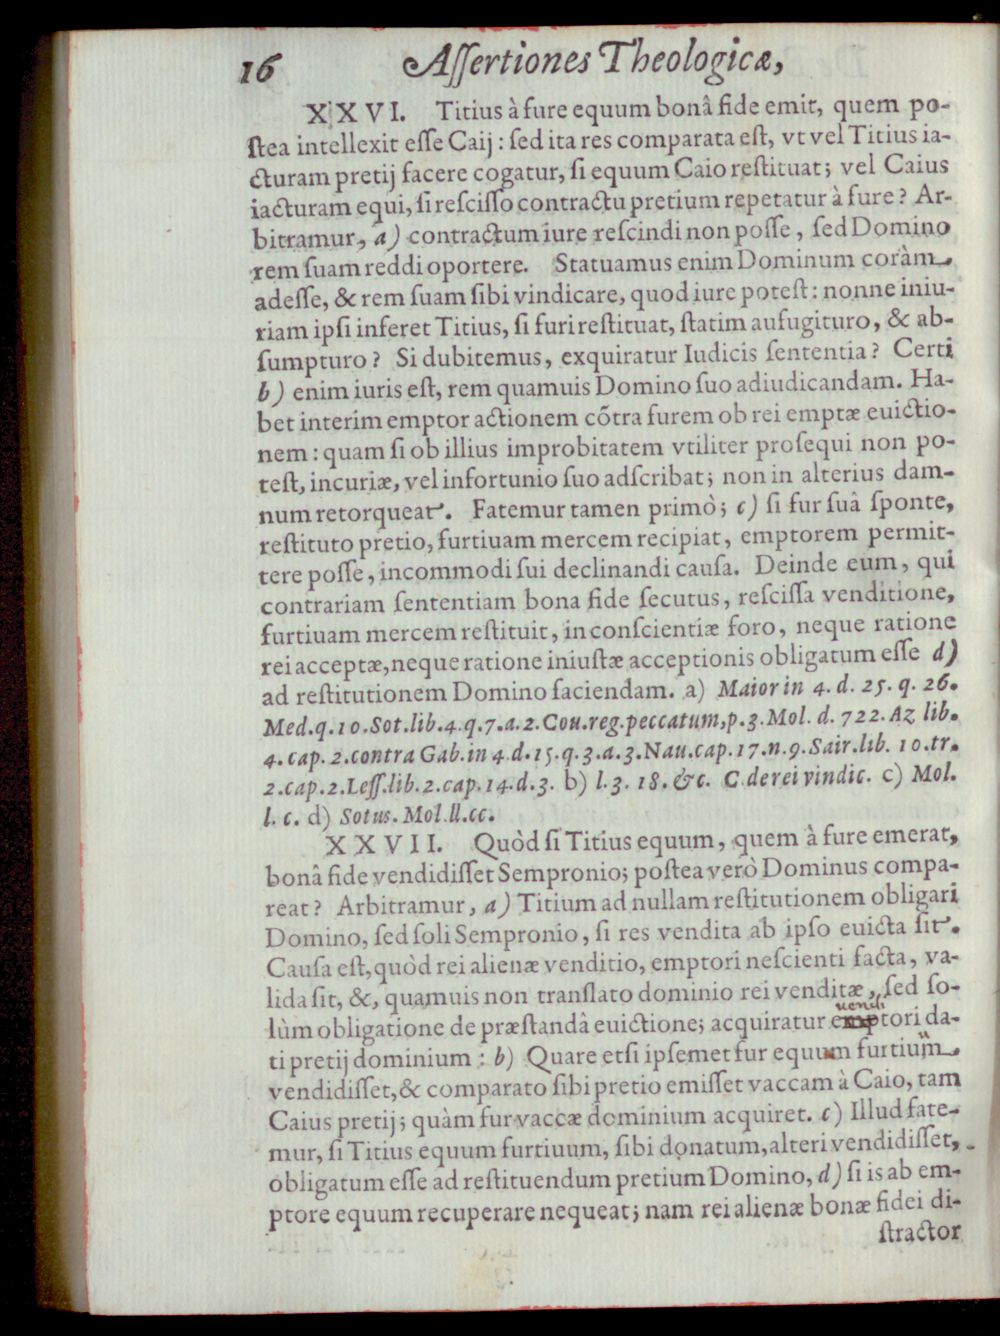 16 Assertiones Theologicæ,
XXVI. Titius à fure equum bonâ fide emit, quem po-
stea intellexit esse Caij : sed ita res comparata est, vt vel Titius ia-
cturam pretij facere cogatur, si equum Caio restituat; vel Caius
iacturam equi, si rescisso contractu pretium repetatur à fure? Ar-
bitramur, a) contractum iure rescindi non posse, sed Domino
rem suam reddi oportere. Statuamus enim Dominum coràm
adesse, & rem suam sibi vindicare, quod iure potest: nonne iniu-
riam ipsi inferet Titius, si furi restituat, statim aufugituro, & ab-
sumpturo? Si dubitemus, exquiratur Iudicis sententia? Certi
b) enim iuris est, rem quamuis Domino suo adiudicandam. Ha-
bet interim emptor actionem cõtra furem ob rei emptæ euictio-
nem: quam si ob illius improbitatem vtiliter prosequi non po-
test, incuriæ, vel infortunio suo adscribat; non in alterius dam-
num retorqueat. Fatemur tamen primò; c) si fur suâ sponte,
restituto pretio, furtiuam mercem recipiat, emptorem permit-
tere posse, incommodi sui declinandi causa. Deinde eum, qui
contrariam sententiam bona fide secutus, rescissa venditione,
furtiuam mercem restituit, in conscientiæ foro, neque ratione
rei acceptæ, neque ratione iniustæ acceptionis obligatum esse d)
ad restitutionem Domino faciendam. a) Maior in 4. d. 25. q. 26.
Med. q. 10. Sot. lib. 4. q. 7. a. 2. Cou. reg. peccatum, p. 3. Mol. d. 722. Az lib.
4. cap. 2. contra Gab. in 4. d. 15. q. 3. a. 3. Nau. cap. 17. n. 9. Sair. lib. 10. tr.
2. cap. 2. Less. lib. 2. cap. 14. d. 3. b) l. 3. 18. &c. C. de rei vindic. c) Mol.
l. c. d) Sotus. Mol. ll. cc.
XXVII. Quòd si Titius equum, quem à fure emerat,
bonâ fide vendidisset Sempronio; postea verò Dominus compa-
reat? Arbitramur, a) Titium ad nullam restitutionem obligari
Domino, sed soli Sempronio, si res vendita ab ipso euicta sit.
Causa est, quòd rei alienæ venditio, emptori nescienti facta, va-
lida sit, &, quamuis non translato dominio rei venditæ, sed so-
lùm obligatione de præstandâ euictione; acquiratur vendi emptori da-
ti pretij dominium : b) Quare etsi ipsemet fur equum furtiuum
vendidisset, & comparato sibi pretio emisset vaccam à Caio, tam
Caius pretij; quàm fur vaccæ dominium acquiret. c) Illud fate-
mur, si Titius equum furtiuum, sibi donatum, alteri vendidisset,
obligatum esse ad restituendum pretium Domino, d) si is ab em-
ptore equum recuperare nequeat; nam rei alienæ bonæ fidei di-
stractor